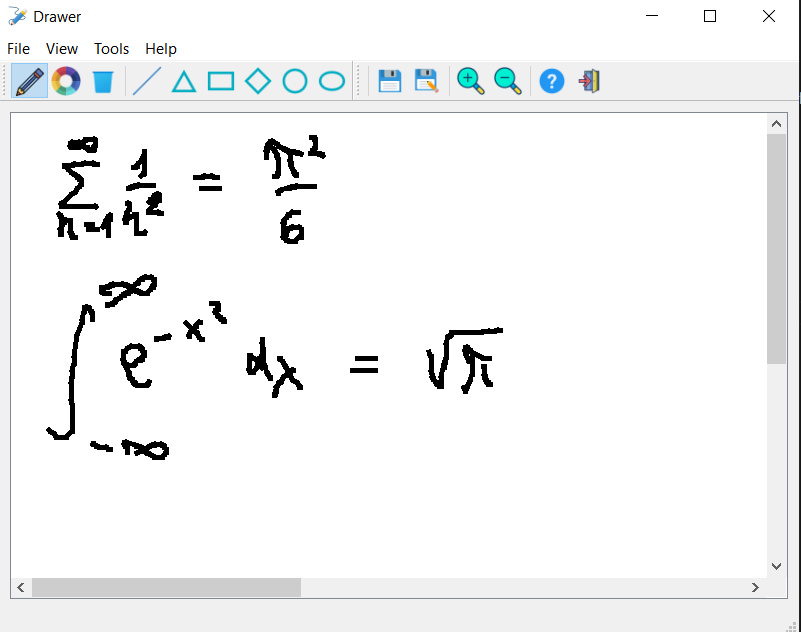 Drawer
File View Tools Help
∞
∑ 1/n² = π²/6
n=1
∫_{-∞}^{∞} e^{-x²} dx = √π